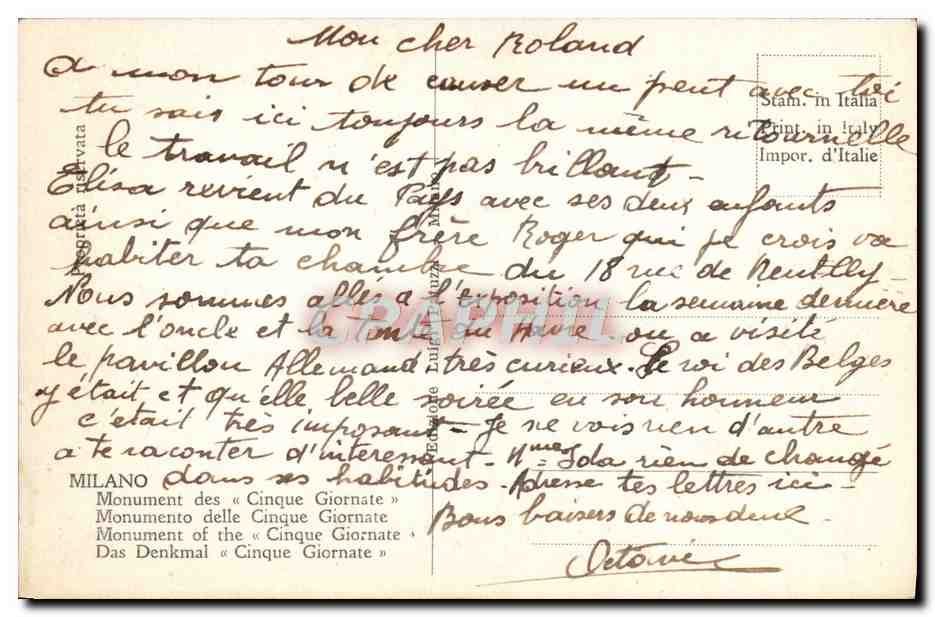 Mon cher Roland
a mon tour de causer un peut avec toi
tu sais ici toujours la même ritournelle
le travail n'est pas brillant -
Elisa revient du Pays avec ses deux enfants
ainsi que mon frère Roger qui je crois va
habiter ta chambre du 18 rue de Neuilly -
Nous sommes allés a l'exposition la semaine dernière
avec l'oncle et la tante du Havre on a visité
le pavillon Allemand très curieux. Le roi des Belges
y était et qu'elle belle soirée en son honneur
c'était très imposant - Je ne vois rien d'autre
a te raconter d'interessant - Mme Ida rien de changé
dans ses habitudes - Adresse tes lettres ici -
Bons baisers de nous deux -
Octavie
Stam. in Italia
Print. in Italy
Impor. d'Italie
Proprietà riservata
Edizione Luigi Milano
CPAPHIL
MILANO
Monument des « Cinque Giornate »
Monumento delle Cinque Giornate
Monument of the « Cinque Giornate
Das Denkmal « Cinque Giornate »